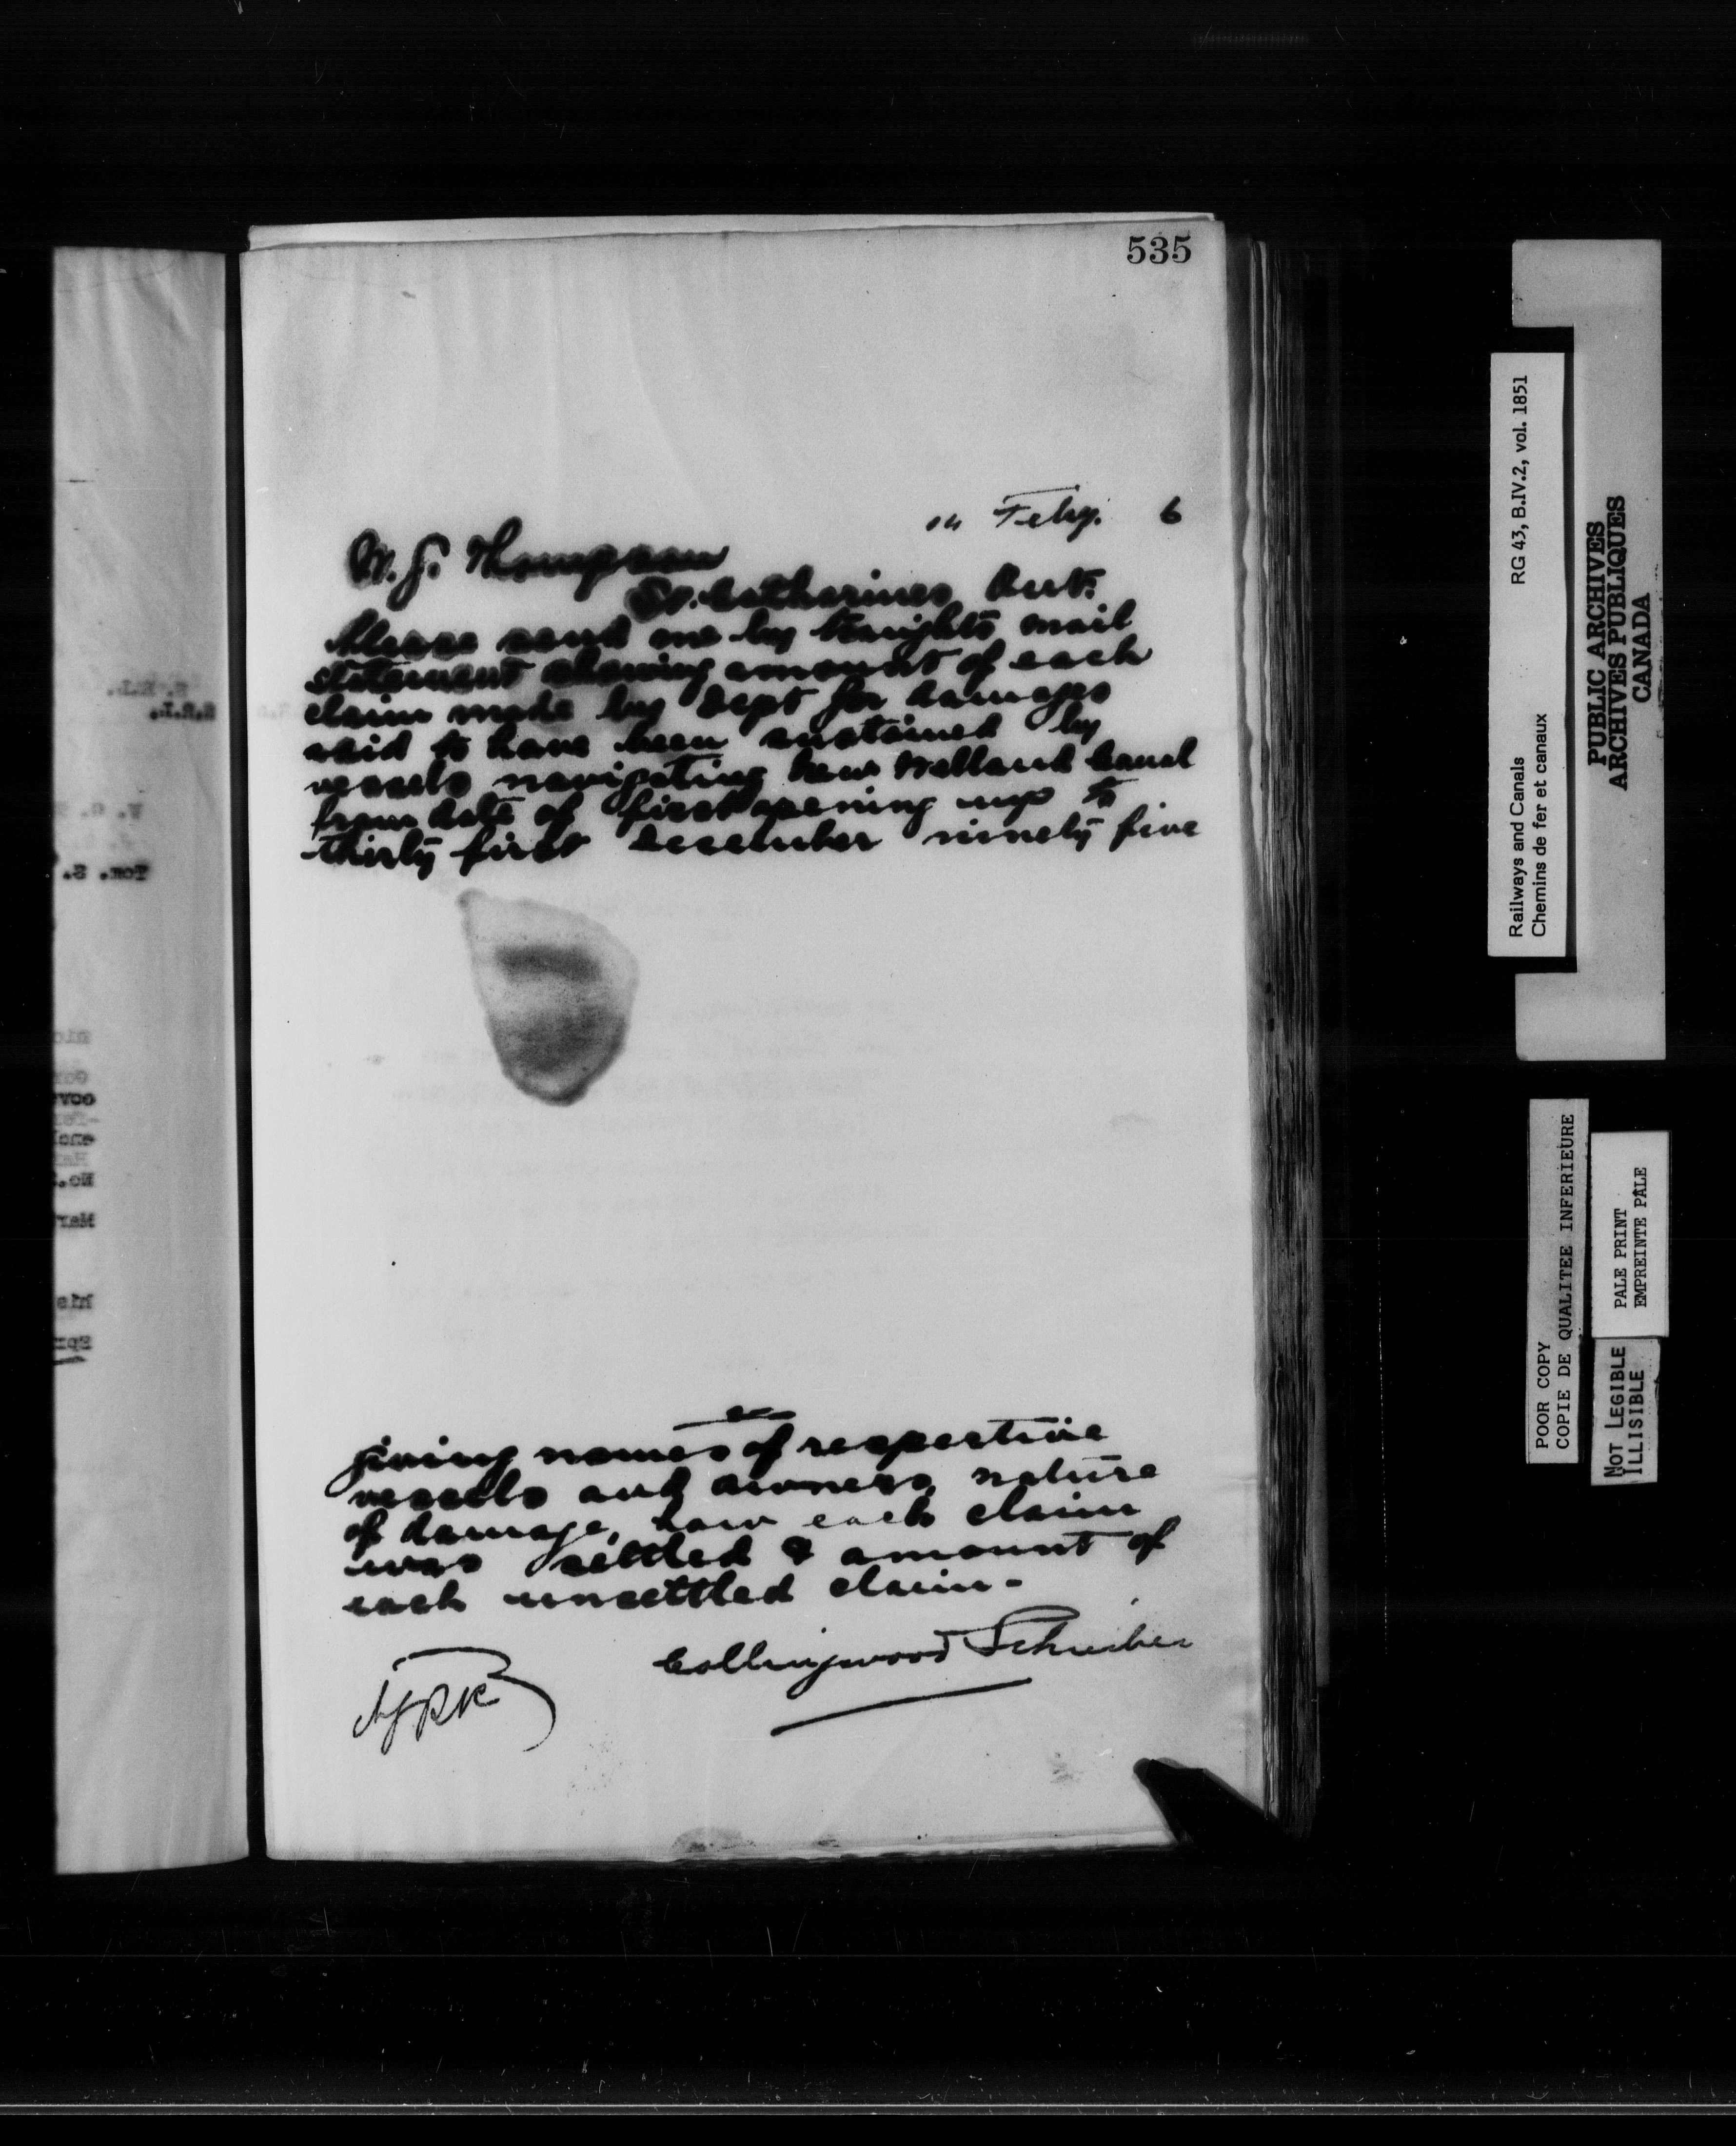 535
14 Feby. 6
W. G. Thompson
St. Catharines Ont.
Please send me by tonights mail
statement showing amount of each
claim made by Dept for damages
said to have been sustained by
vessels navigating New Welland Canal
from date of first opening up to
thirty first December ninety five
giving names of respective
vessels and owners, nature
of damage, how each claim
was settled & amount of
each unsettled claim-
Collingwood Schreiber
Railways and Canals RG 43, B.IV.2, vol. 1851
Chemins de fer et canaux
PUBLIC ARCHIVES
ARCHIVES PUBLIQUES
CANADA
POOR COPY
COPIE DE QUALITEE INFERIEURE
PALE PRINT
EMPREINTE PÂLE
NOT LEGIBLE
ILLISIBLE